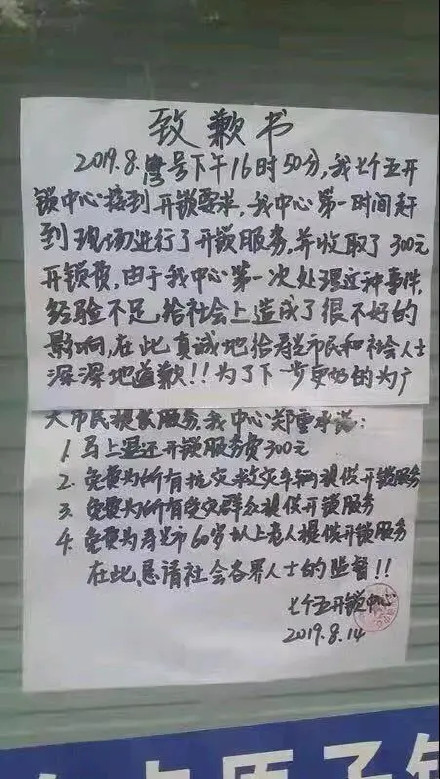 致歉书
2019.8.号下午16时50分,我七个五开
锁中心接到开锁要求,我中心第一时间赶
到现场进行了开锁服务,并收取了300元
开锁费,由于我中心第一次处理这种事件
经验不足,给社会上造成了很不好的
影响,在此真诚地给寿光市民和社会人士
深深地道歉!!为了下一步更好的为广
大市民提供服务,我中心郑重承诺:
1.马上退还开锁服务费300元
2.免费为所有抢灾救灾车辆提供开锁服务
3.免费为所有受灾群众提供开锁服务
4.免费为寿光市60岁以上老人提供开锁服务
在此,恳请社会各界人士的监督!!
七个五开锁中心
2019.8.14
原子